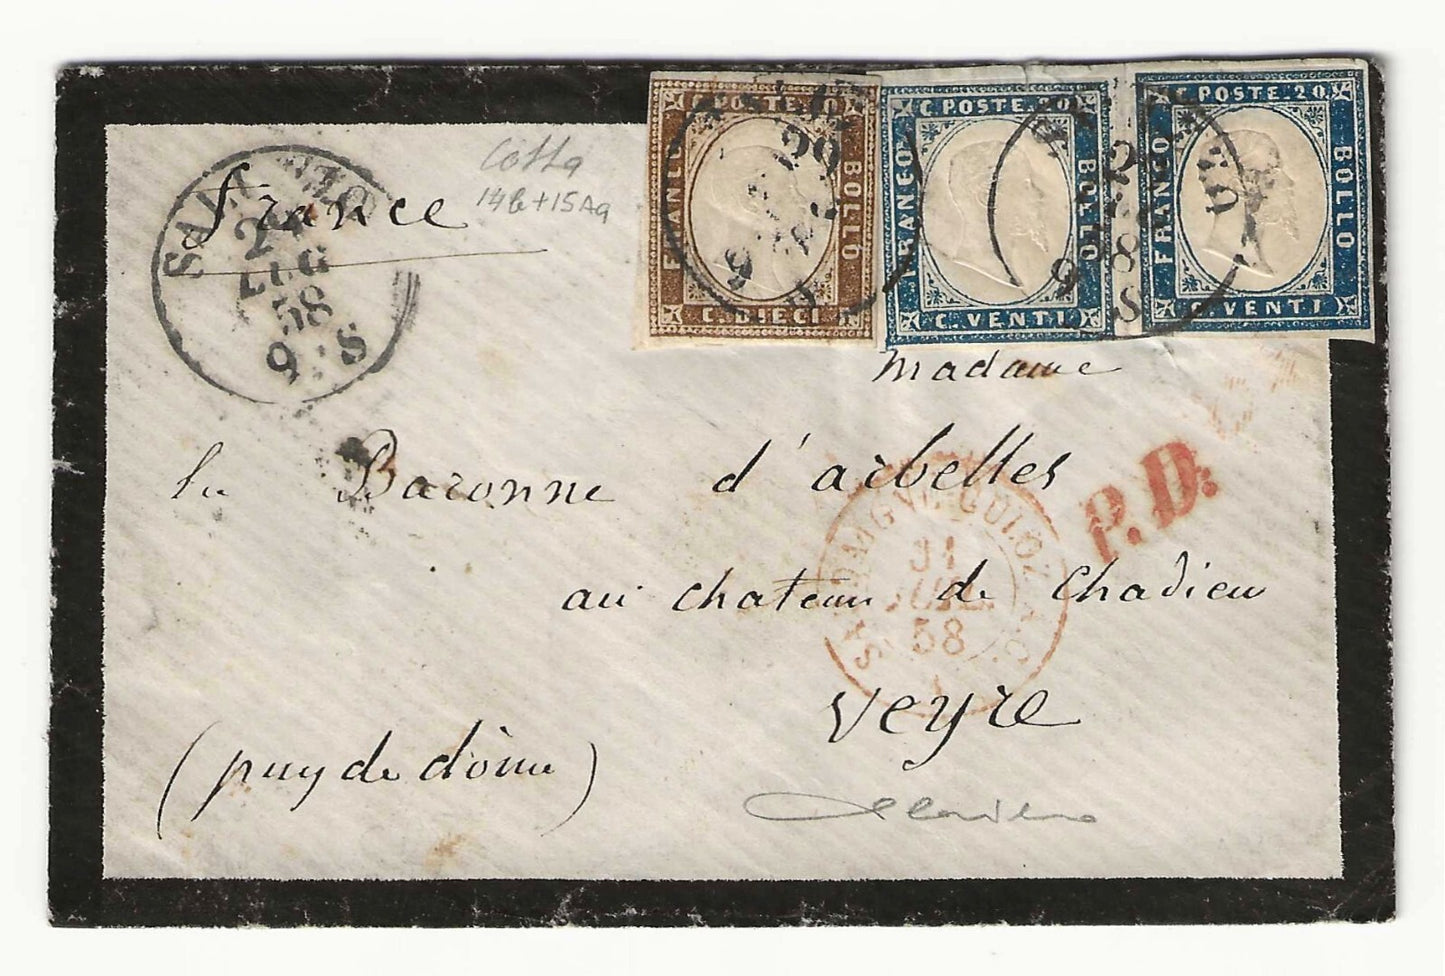 C. POSTE. 10
FRANCO
BOLLO
C. DIECI
C. POSTE. 20
FRANCO
BOLLO
C. VENTI
C. POSTE. 20
FRANCO
BOLLO
C. VENTI
29
9
2
58
9 S
LUG
58
9 S
Cotta
14b+15Aa
france
madame
la Baronne d'arbelles
P.D.
31
JUIL
58
au chateau de Chadieu
Veyre
(puy de dôme)